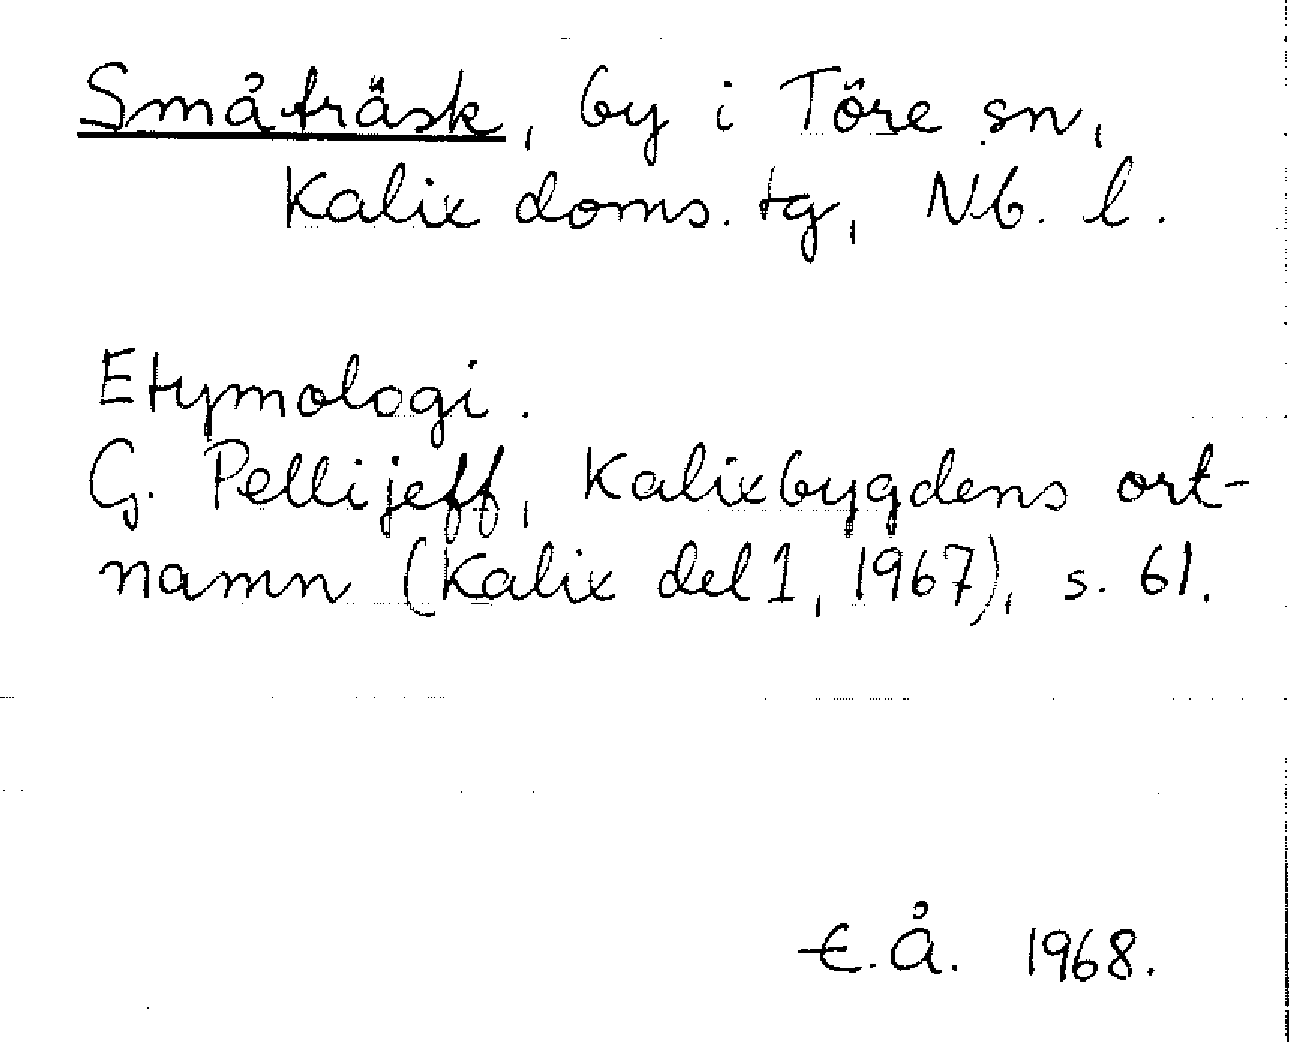 Småträsk, by i Töre sn,
Kalix doms. tg, Nb. l.
Etymologi.
G. Pellijeff, Kalixbygdens ort-
namn (Kalix del 1, 1967), s. 61.
E.Å. 1968.